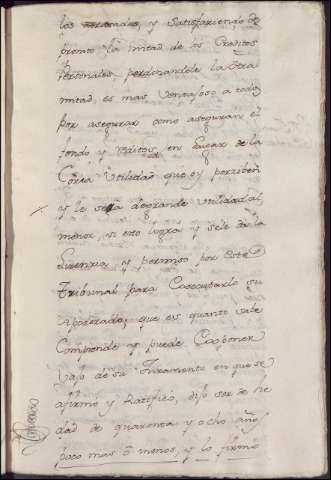 los reditados, y satisfaciendo de
pronto la mitad de los Creditos
Personales, perdonandole la otra
mitad, es mas ventajoso a todos
por asegurar como aseguran el
fondo y reditos, en lugar de la
Corta Utilidad que oy perciben
y le será de grande utilidad al
menor, si esto logra y se le dá la
Licencia, y permiso por este
Tribunal para executarlo su
Apoderado, que es quanto sabe
Comprende y puede Exponer
vajo de su Juramento en que se
afirmó y Ratificó, dijo ser de he
dad de quarenta y ocho años
poco mas ó menos, y lo firmó